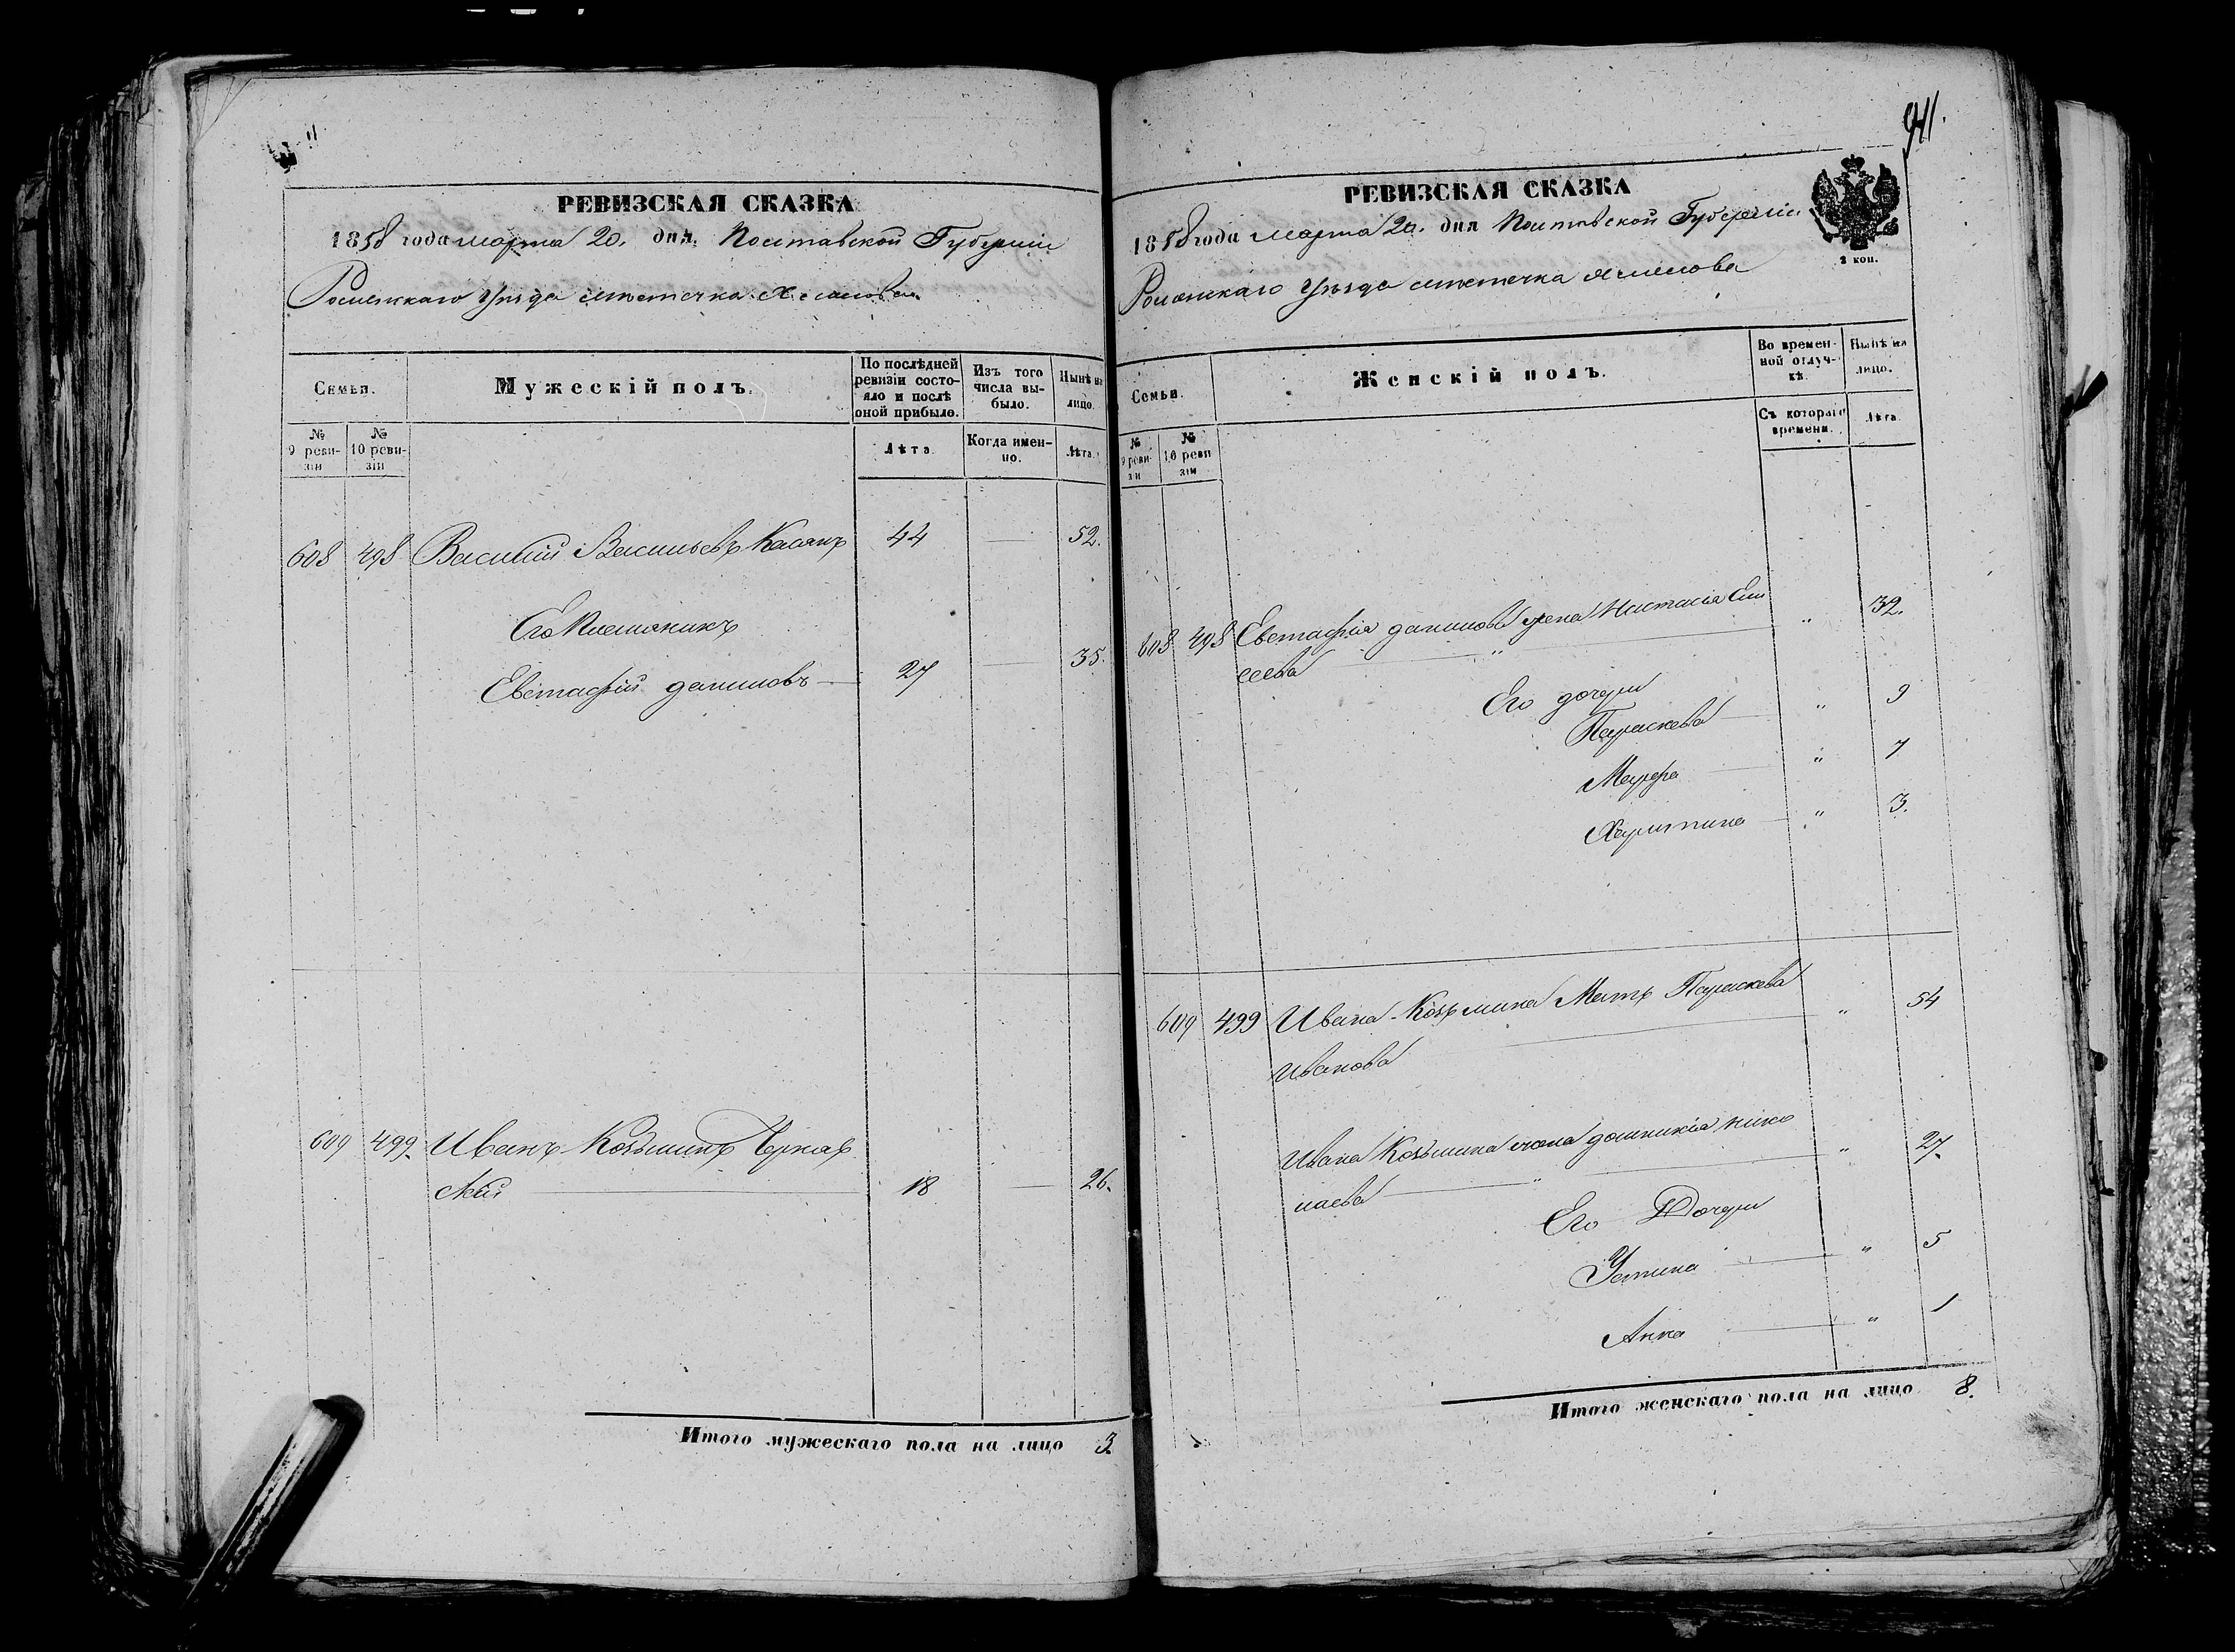 РЕВИЗСКАЯ СКАЗКА
1858 года марта 20. дня, Полтавской Губерніи
Роменскаго Уѣзда мѣстечка Хмелова
Семьи.
Мужескій полъ.
По послѣдней ревизіи состояло и послѣ оной прибыло.
Изъ того числа выбыло.
Нынѣ на лицо.
№ 9 ревизіи
№ 10 ревизіи
Лѣта.
Когда именно.
Лѣта.
608 498 Василій Васильевъ Касянъ 44 — 52.
Его Племяникъ
Евстафій даниловъ — 27 — 35.
609 499. Иванъ Козьминъ Черкас
скій — 18 — 26.
Итого мужескаго пола на лицо 3.
941.
РЕВИЗСКАЯ СКАЗКА
1858 года марта 20. дня Полтавской Губерніи
2 коп.
Роменскаго Уѣзда мѣстечка Хмелова
Семьи.
Женскій полъ.
Во временной отлучкѣ.
Нынѣ на лицо.
№ 9 ревизіи
№ 10 ревизіи
Съ котораго времени.
Лѣта.
608 498 Евстафія данилова жена Настасія Ели " 32.
сеева — "
Его дочери
Параскева — " 9
Марфа — " 7
Харитина — " 3.
609 499 Ивана Козьмина Мать Параскева " 54
Иванова —
Ивана Козьмина жена домникія нико " 27.
лаева — "
Его Дочери
Устина — " 5
Анна — " 1
Итого женскаго пола на лицо 8.